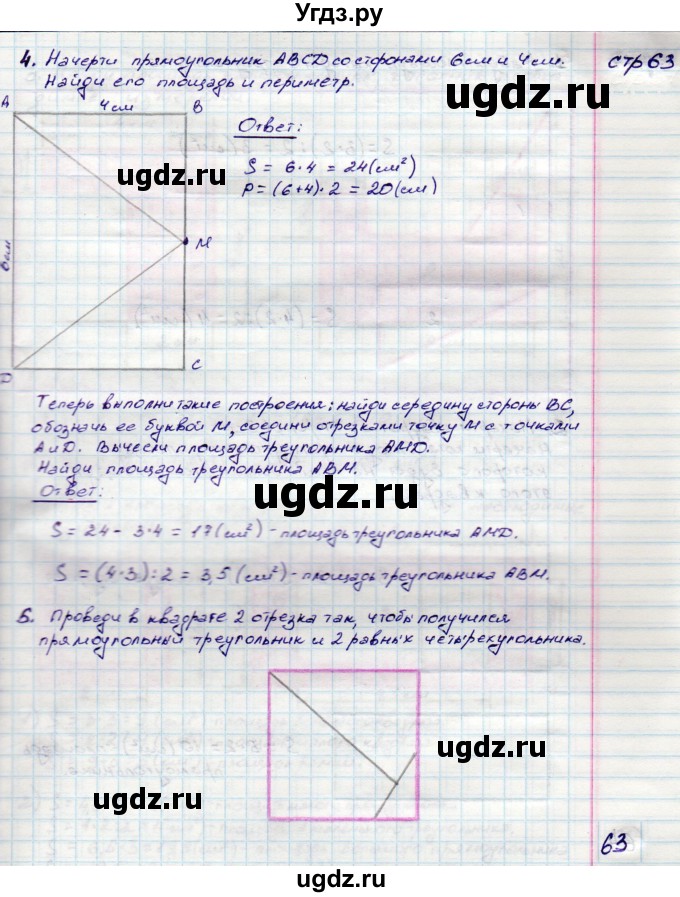 Угдз.ру
4. Начерти прямоугольник ABCD со сторонами 6см и 4см. стр 63
Найди его площадь и периметр.
ugdz.ru
A 4 см B
Ответ:
S = 6·4 = 24(см²)
P = (6+4)·2 = 20(см)
ugdz.ru
ugdz.ru
M
6см
D C
Теперь выполни такие построения: найди середину стороны BC,
обозначь ее буквой M, соедини отрезками точку M с точками
A и D. Вычесли площадь треугольника AMD.
Найди площадь треугольника ABM.
ugdz.ru
Ответ:
S = 24 - 3·4 = 17(см²) - площадь треугольника AMD.
S = (4·3):2 = 3,5 (см²) - площадь треугольника ABM.
5. Проведи в квадрате 2 отрезка так, чтобы получился
прямоугольный треугольник и 2 равных четырехугольника.
ugdz.ru
ugdz.ru
63
ugdz.ru